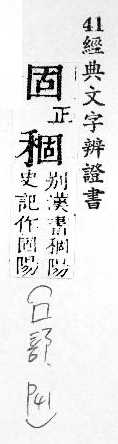 41經典文字辨證書
固正
稒別漢書稒陽
史記作固陽
(口部、P41)